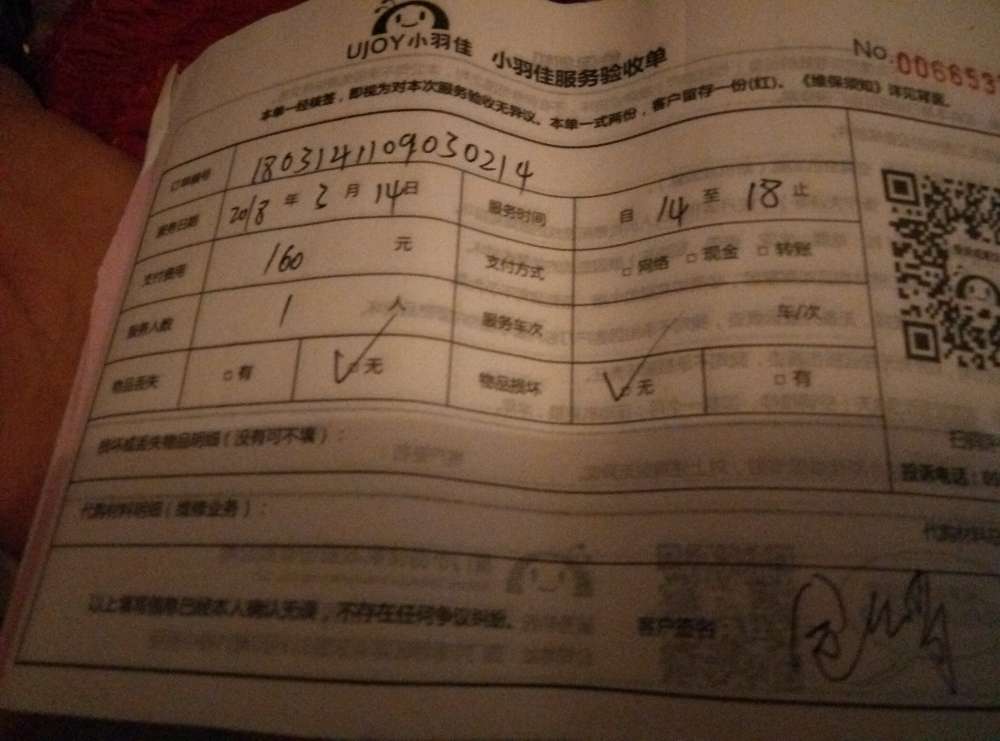 UJOY小羽佳 小羽佳服务验收单 No.006653
本单一经续签，即视为对本次服务验收无异议。本单一式两份，客户留存一份(红)。《维保须知》详见背面。
订单编号 1803141109030214
服务日期 2018 年 3 月 14 日 服务时间 自 14 至 18 止
支付费用 160 元 支付方式 □ 网络 □ 现金 □ 转账
服务人数 1 人 服务车次 车/次
物品丢失 □ 有 □ 无 物品损坏 □ 无 □ 有
损坏或丢失物品明细（没有可不填）：
投诉电话：
代购材料明细（维修业务）：
代购材料
以上填写信息已经本人确认无误，不存在任何争议纠纷。 客户签名：